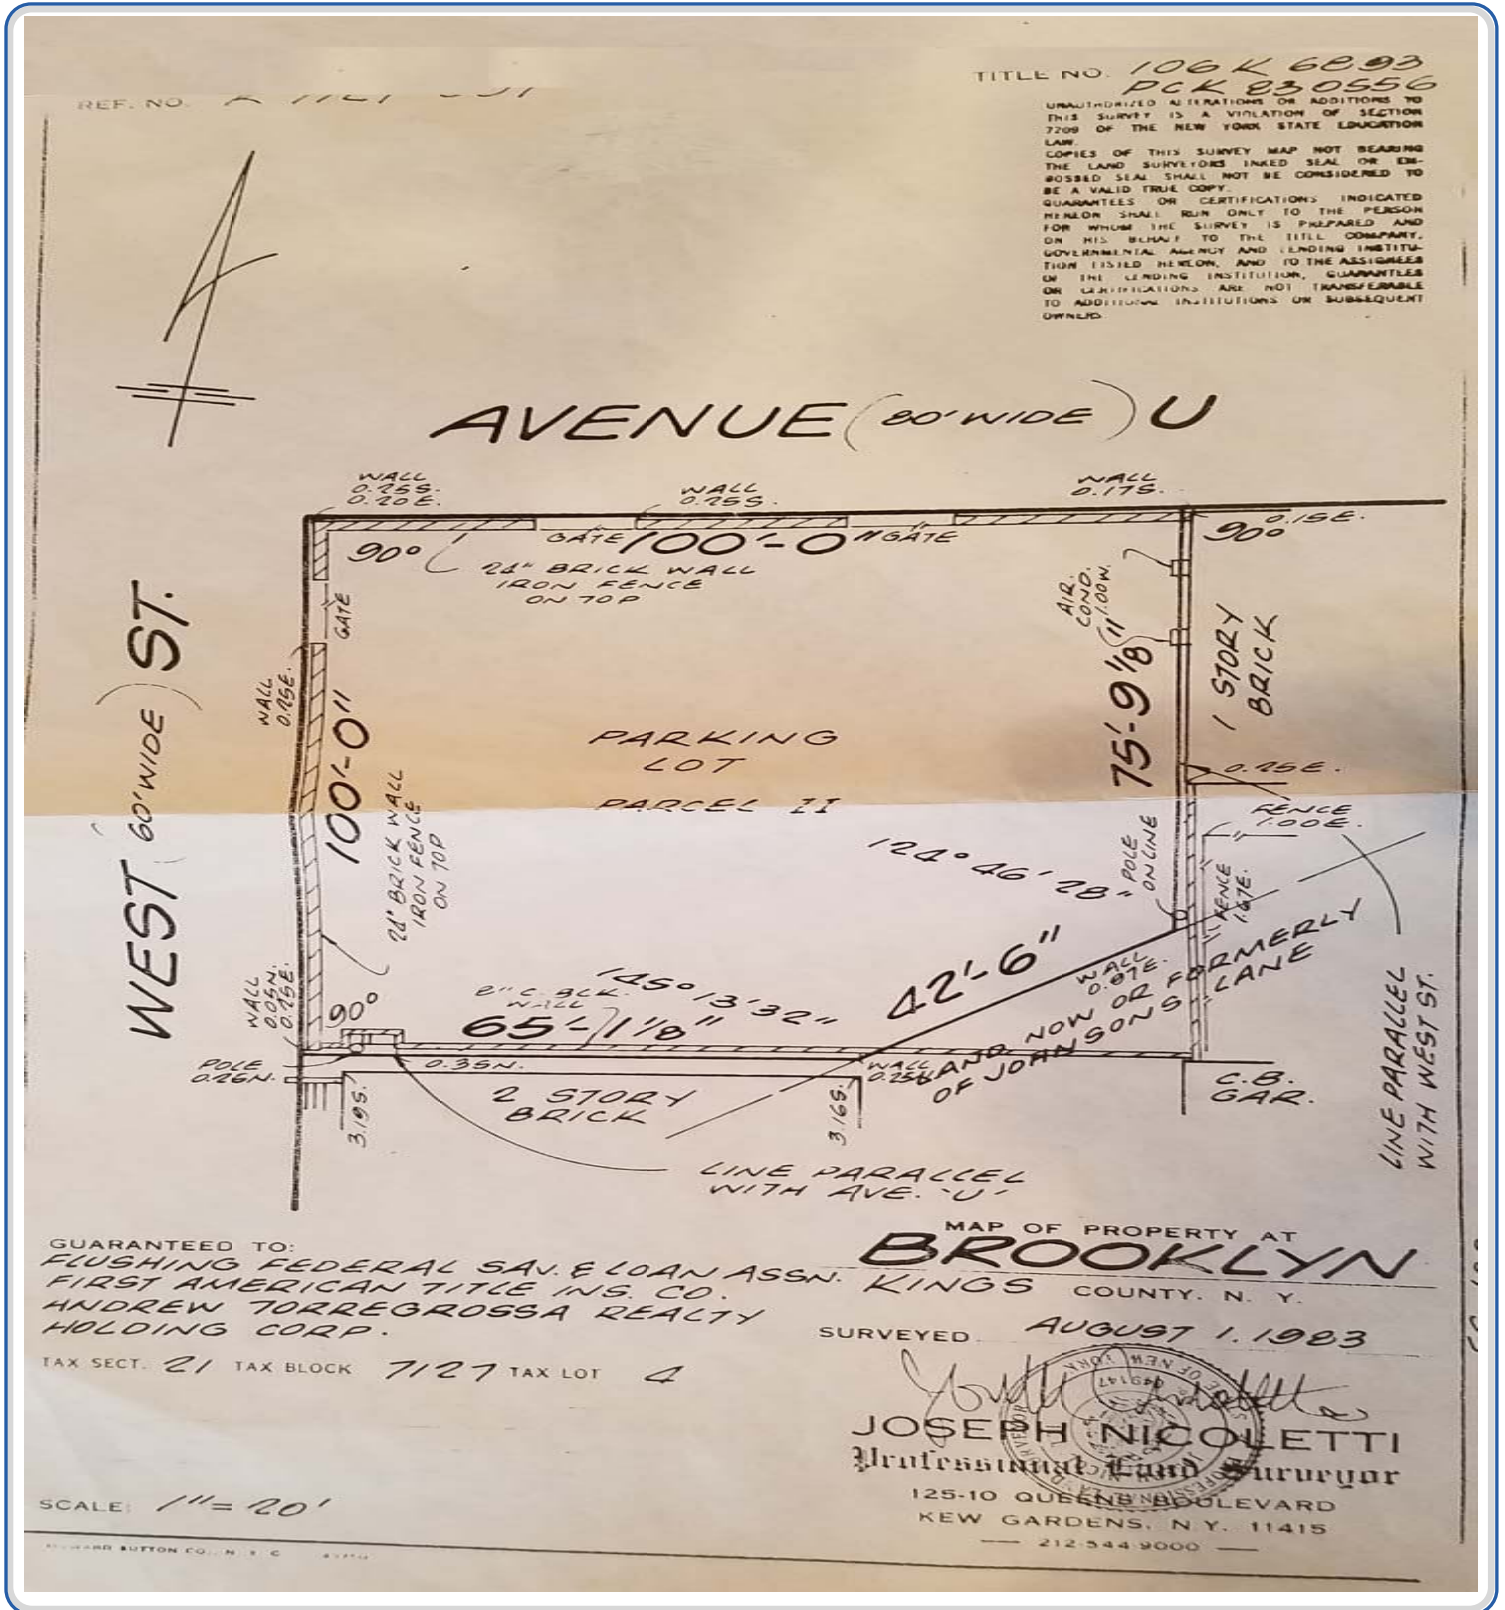 TITLE NO. 106 K 6893
PCK 830556
REF. NO.
UNAUTHORIZED ALTERATIONS OR ADDITIONS TO
THIS SURVEY IS A VIOLATION OF SECTION
7209 OF THE NEW YORK STATE EDUCATION
LAW.
COPIES OF THIS SURVEY MAP NOT BEARING
THE LAND SURVEYORS INKED SEAL OR EM-
BOSSED SEAL SHALL NOT BE CONSIDERED TO
BE A VALID TRUE COPY.
GUARANTEES OR CERTIFICATIONS INDICATED
HEREON SHALL RUN ONLY TO THE PERSON
FOR WHOM THE SURVEY IS PREPARED AND
ON HIS BEHALF TO THE TITLE COMPANY,
GOVERNMENTAL AGENCY AND LENDING INSTITU-
TION LISTED HEREON, AND TO THE ASSIGNEES
OF THE LENDING INSTITUTION, GUARANTEES
OR CERTIFICATIONS ARE NOT TRANSFERABLE
TO ADDITIONAL INSTITUTIONS OR SUBSEQUENT
OWNERS.
AVENUE (80' WIDE) U
WALL
0.25S.
0.20E.
WALL
0.25S.
WALL
0.17S.
0.15E.
90°
GATE
100'-0"
GATE
90°
24" BRICK WALL
IRON FENCE
ON TOP
AIR
COND.
1.00W.
GATE
WEST (60' WIDE) ST.
WALL
0.25E.
100'-0"
24" BRICK WALL
IRON FENCE
ON TOP
PARKING
LOT
PARCEL II
75'-9 1/8"
1 STORY
BRICK
0.25E.
FENCE
1.00E.
124° 46' 28"
POLE
ON LINE
FENCE
1.67E.
42'-6"
WALL
0.87E.
LAND NOW OR FORMERLY
OF JOHNSONS LANE
LINE PARALLEL
WITH WEST ST.
WALL
0.05N.
0.25E.
90°
8" C. BLK.
WALL
145° 13' 32"
65'-1 1/8"
POLE
0.26N.
0.35N.
WALL
2 STORY
BRICK
3.19S.
3.16S.
C.B.
GAR.
LINE PARALLEL
WITH AVE. "U"
GUARANTEED TO:
FLUSHING FEDERAL SAV. & LOAN ASSN.
FIRST AMERICAN TITLE INS. CO.
ANDREW TORREGROSSA REALTY
HOLDING CORP.
TAX SECT. 21 TAX BLOCK 7127 TAX LOT 4
MAP OF PROPERTY AT
BROOKLYN
KINGS COUNTY. N. Y.
SURVEYED AUGUST 1. 1983
JOSEPH NICOLETTI
Professional Land Surveyor
125-10 QUEENS BOULEVARD
KEW GARDENS, N.Y. 11415
212-544-9000
SCALE: 1"=20'